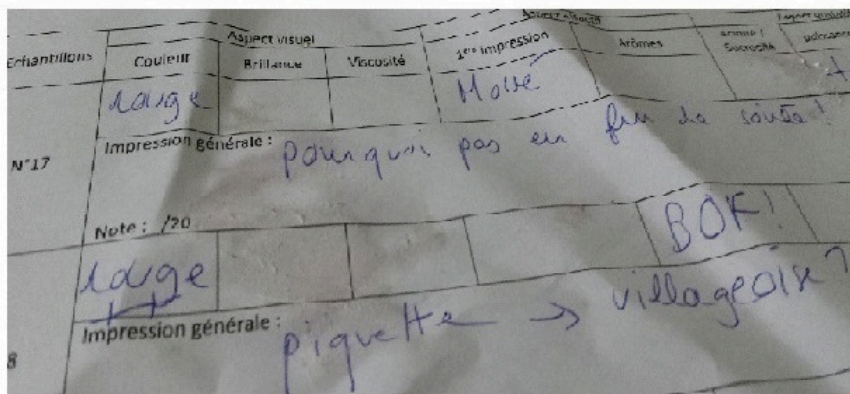 Aspect visuel
Echantillons Couleur Brillance Viscosité 1ère impression Arômes Sucrosité
rouge +
N°17 Impression générale : pourquoi pas en fin de soirée !
Note : /20
rouge BOF !
++
8 Impression générale : piquette → villageoise ?